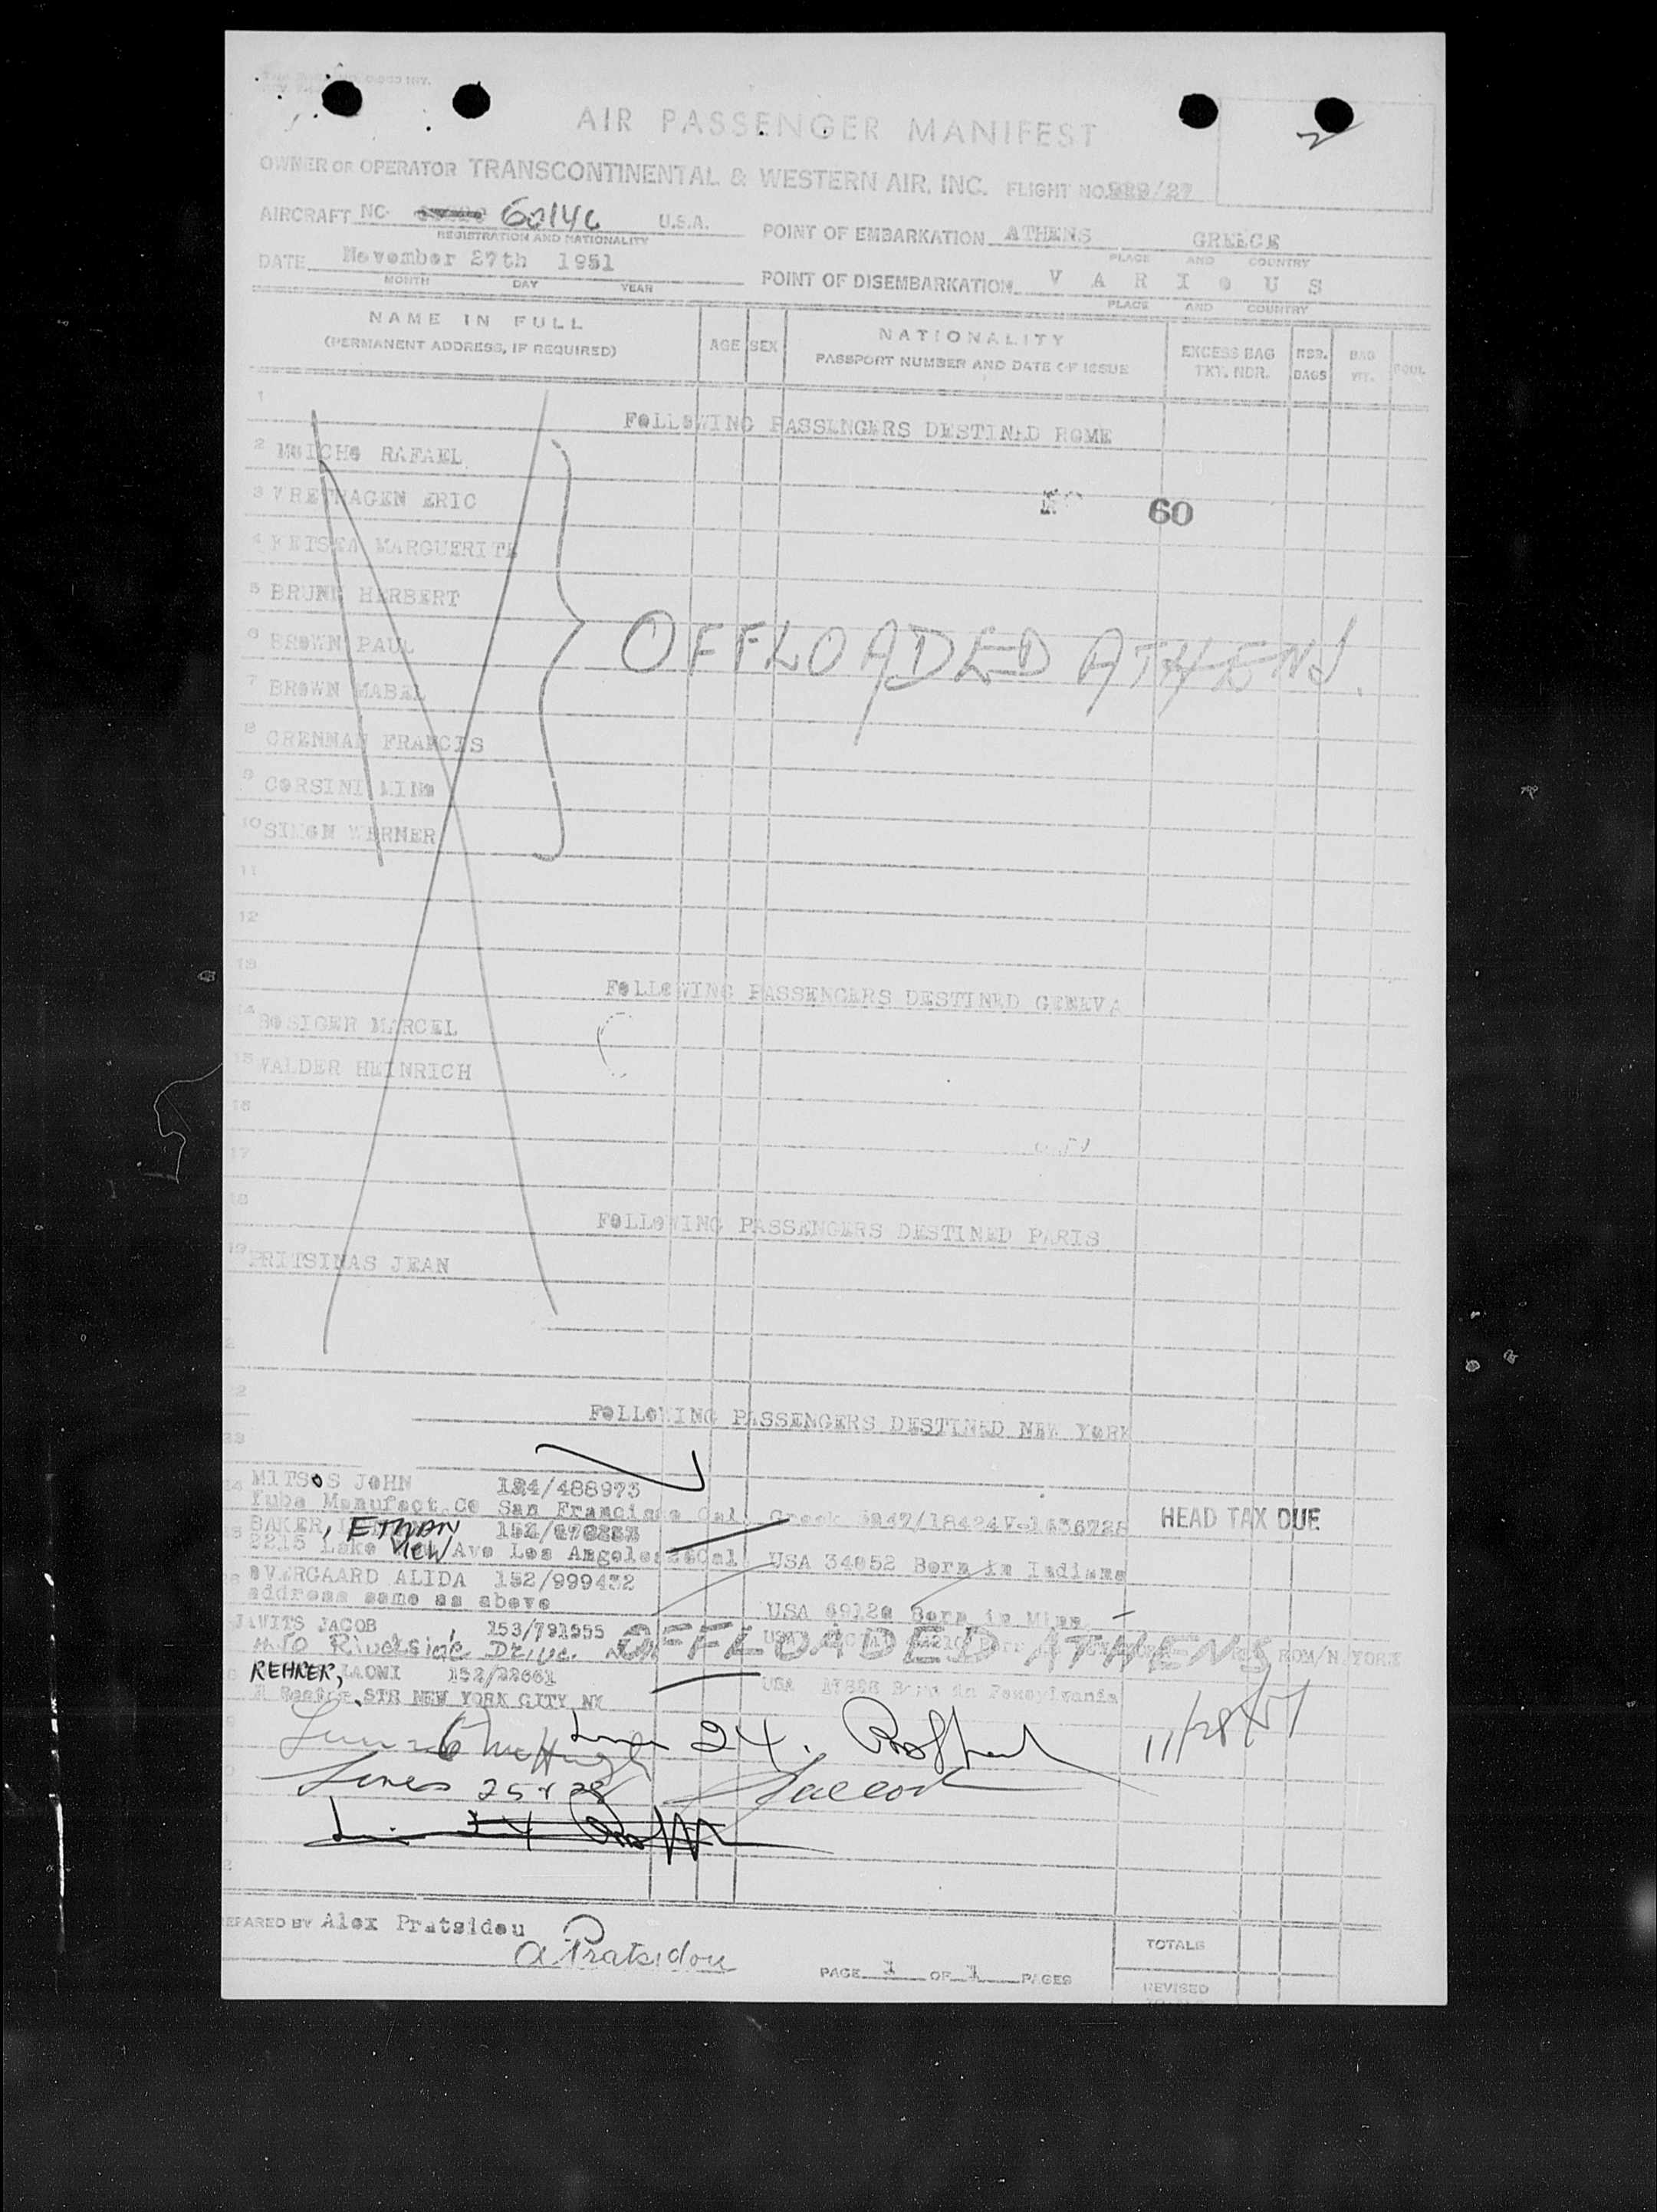 2
AIR PASSENGER MANIFEST
OWNER OR OPERATOR TRANSCONTINENTAL & WESTERN AIR, INC. FLIGHT NO. 929/27
AIRCRAFT NC 6014C U.S.A. POINT OF EMBARKATION ATHENS GREECE
REGISTRATION AND NATIONALITY PLACE AND COUNTRY
DATE November 27th 1951 POINT OF DISEMBARKATION V A R I O U S
MONTH DAY YEAR PLACE AND COUNTRY
NAME IN FULL
(PERMANENT ADDRESS, IF REQUIRED)
AGE SEX
NATIONALITY
PASSPORT NUMBER AND DATE OF ISSUE
EXCESS BAG
TKT. NBR.
NBR.
BAGS
BAG
WT.
1
FOLLOWING PASSENGERS DESTINED ROME
2 MOICHO RAFAEL
3 VRETHAGEN ERIC
60
4 KETSEA MARGUERITE
5 BRUNE HERBERT
6 BROWN PAUL
OFFLOADED ATHENS.
7 BROWN MABEL
8 CRENMAN FRANCIS
9 CORSINI MINO
10 SIMON WERNER
11
12
13
FOLLOWING PASSENGERS DESTINED GENEVA
14 BOSIGER MARCEL
15 WALDER HEINRICH
16
17
18
FOLLOWING PASSENGERS DESTINED PARIS
19 PRITSINAS JEAN
FOLLOWING PASSENGERS DESTINED NEW YORK
MITSOS JOHN 124/488973
Yuba Manufact. Co San Francisco Cal. Greek HEAD TAX DUE
BAKER, ETHAN
2215 Lake View Ave Los Angeles Cal USA 34052 Born in Indiana
OVERGAARD ALIDA 152/999432
address same as above USA 69120 Born in Minn
JAVITS JACOB 153/791955
Riverside Drive. OFFLOADED ATHENS ROM/N.YORK
REHRER, 152/22661
STR NEW YORK CITY NY USA Born in Pennsylvania
24. 11/28/51
Lines 25 & 28
PREPARED BY Alex Pratsidou
A Pratsidou
PAGE 1 OF 1 PAGES
TOTALS
REVISED